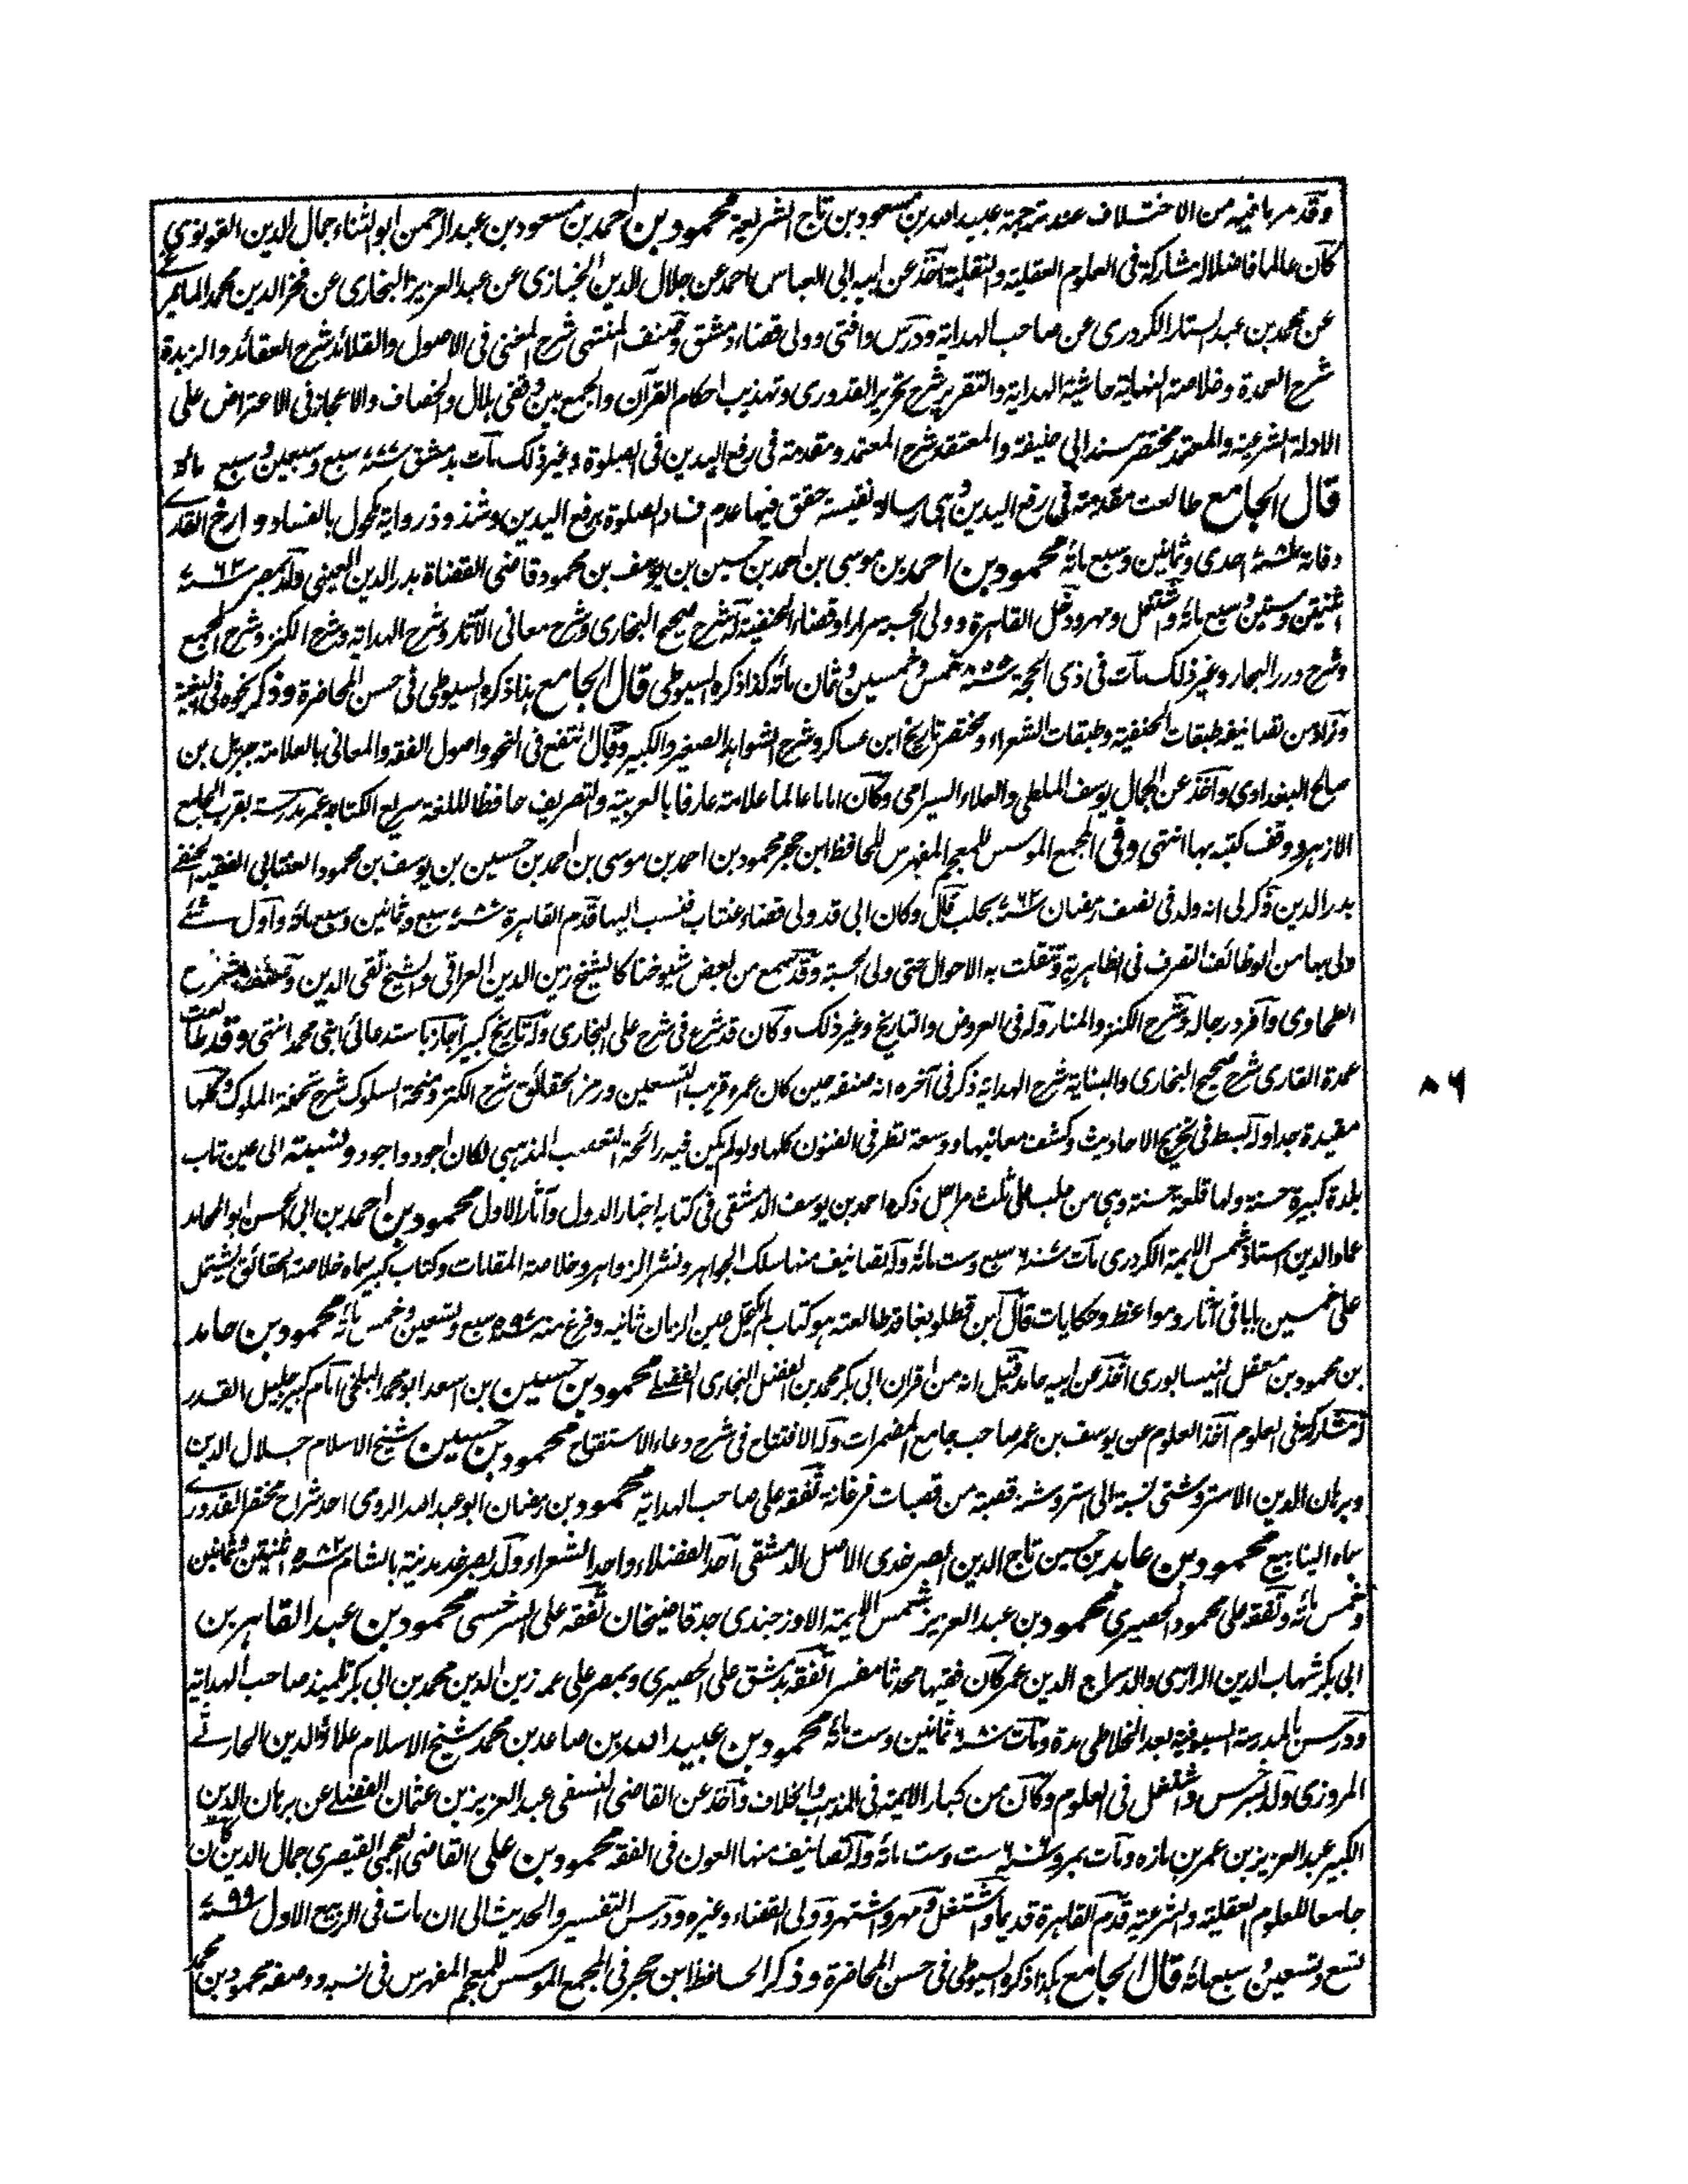 وقد مر ما فيه من الاختلاف عند ترجمة عبيد الله بن مسعود بن تاج الشريعة محمود بن احمد بن مسعود بن عبد الرحمن ابو الثناء جمال الدين القونوي
كان عالما فاضلا له مشاركة فى العلوم العقلية والنقلية اخذ عن ابيه ابى العباس احمد عن جلال الدين الخبازى عن عبد العزيز البخارى عن فخر الدين محمد المايمرغي
عن محمد بن عبد الستار الكردرى عن صاحب الهداية ودرس وافتى وولى قضاء دمشق وصنف المنتهى شرح المغنى فى الاصول والقلائد شرح العقائد والزبدة
شرح العمدة وخلاصة النهاية حاشية الهداية والتقرير شرح تحرير القدورى وتهذيب احكام القرآن والجمع بين وقفى هلال والخصاف والاعجاز فى الاعتراض على
الادلة الشرعية والمعتمد مختصر مسند ابى حنيفة والمعتقد شرح المعتمد ومقدمة فى رفع اليدين فى الصلوة وغير ذلك مات بدمشق سنة ٧٧٧ سبع وسبعين وسبع مائة
قال الجامع طالعت مقدمته فى رفع اليدين وهى رسالة نفيسة حقق فيها عدم فساد الصلوة برفع اليدين وشذوذ رواية مكحول بالفساد وارخ القارى
وفاته سنة ٧٨١ احدى وثمانين وسبع مائة محمود بن احمد بن موسى بن احمد بن حسين بن يوسف بن محمود قاضى القضاة بدر الدين العينى ولد بمصر سنة ٧٦٢
اثنتين وستين وسبع مائة واشتغل ومهر ودخل القاهرة وولى الحسبة مرارا وقضاء الحنفية له شرح صحيح البخارى وشرح معانى الآثار وشرح الهداية وشرح الكنز وشرح المجمع
وشرح درر البحار وغير ذلك مات فى ذى الحجة سنة ٨٥٥ خمس وخمسين وثمان مائة كذا ذكره السيوطى قال الجامع هذا ذكره السيوطى فى حسن المحاضرة وذكر نحوه فى البغية
وزاد من تصانيفه طبقات الحنفية وطبقات الشعراء ومختصر تاريخ ابن عساكر وشرح الشواهد الصغير والكبير وقال انتفع فى النحو واصول الفقه والمعانى بالعلامة جبريل بن
صالح البغدادى واخذ عن الجمال يوسف الملطى والعلاء السيرامى وكان اماما عالما علامة عارفا بالعربية والتصريف حافظا للغة سريع الكتابة عمر مدرسة بقرب الجامع
الازهر ووقف كتبه بها انتهى وفى المجمع الموسس للمعجم المفهرس للحافظ ابن حجر محمود بن احمد بن موسى بن احمد بن حسين بن يوسف بن محمود العنتابى الفقيه الحنفى
بدر الدين ذكر لى انه ولد فى نصف رمضان سنة ٧٦٢ بحلب قال وكان ابى قد ولى قضاء عنتاب فنسب اليها قدم القاهرة سنة سبع وثمانين وسبعمائة واول شئ
ولى بها من الوظائف التصرف فى الظاهرية وتنقلت به الاحوال حتى ولى الحسبة وقد سمع من بعض شيوخنا كالشيخ زين الدين العراقى والشيخ تقى الدين وصنف شرح
الطحاوى وافرد رجاله وشرح الكنز والمنار وله فى العروض والتاريخ وغير ذلك وكان قد شرع فى شرح على البخارى وله تاريخ كبير اجاز باستدعائى ابنى محمد انتهى وقد طالعت
عمدة القارى شرح صحيح البخارى والبناية شرح الهداية ذكر فى آخره انه صنفه حين كان عمره قريب التسعين ورمز الحقائق شرح الكنز ومنحة السلوك شرح تحفة الملوك وكلها
مفيدة جدا وله بسط فى تخريج الاحاديث وكشف معانيها ووسعة نظر فى الفنون كلها ولو لم يكن فيه رائحة التعصب المذهبى لكان اجود واجود ونسبته الى عين تاب
بلدة كبيرة حسنة ولها قلعة حسنة وهى من حلب على ثلث مراحل ذكره احمد بن يوسف الدمشقى فى كتابه اخبار الدول وآثار الاول محمود بن احمد بن ابى الحسن ابو المحامد
عماد الدين استاذ شمس الايمة الكردرى مات سنة ٦٠٧ سبع وست مائة وله تصانيف منها سلك الجواهر ونشر الزواهر وخلاصة المقامات وكتاب كبير سماه خلاصة الحقائق يشتمل
على خمسين بابا فى آثار ومواعظ وحكايات قال ابن قطلوبغا قد طالعته هو كتاب لم تكتحل عين الزمان ثانيه وفرغ منه سنة ٥٩٧ سبع وتسعين وخمس مائة محمود بن حامد
بن محمود بن معقل النيسابورى اخذ عن ابيه حامد قيل انه من اقران ابى بكر محمد بن الفضل البخارى الفضلى محمود بن حسين بن اسعد ابو محمد البلخى امام كبير جليل القدر
له مشاركة فى العلوم اخذ العلوم عن يوسف بن عمر صاحب جامع المضمرات وله الافتتاح فى شرح دعاء الاستفتاح محمود بن حسين شيخ الاسلام جلال الدين
وبرهان الدين الاستروشنى نسبة الى استروشنة قصبة من قصبات فرغانة تفقه على صاحب الهداية محمود بن رمضان ابو عبد الله الرومى احد شراح مختصر القدورى
سماه الينابيع محمود بن عابد بن حسين تاج الدين الصرخدى الاصل الدمشقى احد الفضلاء واحد الشعراء ولد بصرخد مدينة بالشام سنة ٥٨٢ اثنتين وثمانين
وخمس مائة وتفقه على محمود الحصيرى محمود بن عبد العزيز شمس الايمة الاوزجندى جد قاضيخان تفقه على السرخسى محمود بن عبد القاهر بن
ابى بكر شهاب الدين الرازى والد سراج الدين عمر كان فقيها محدثا مفسرا تفقه بدمشق على الحصيرى وبمصر على عمه زين الدين محمد بن ابى بكر تلميذ صاحب الهداية
ودرس بالمدرسة السيوفية بعد الخلاطى مدة ومات سنة ٦٨٠ ثمانين وست مائة محمود بن عبيد الله بن صاعد بن محمد شيخ الاسلام علاؤ الدين الحارثى
المروزى ولد بسرخس واشتغل فى العلوم وكان من كبار الايمة فى المذهب والخلاف واخذ عن القاضى النسفى عبد العزيز بن عثمان الفضلى عن برهان الدين
الكبير عبد العزيز بن عمر بن مازه ومات بمرو سنة ٦٠٦ ست وست مائة وله تصانيف منها العون فى الفقه محمود بن على القاضى العجمى القيصرى جمال الدين كان
جامعا للعلوم العقلية والشرعية قدم القاهرة قديما واشتغل ومهر واشتهر وولى القضاء وغيره ودرس التفسير والحديث الى ان مات فى الربيع الاول سنة ٧٩٩
تسع وتسعين وسبعمائة قال الجامع هكذا ذكره السيوطى فى حسن المحاضرة وذكر الحافظ ابن حجر فى المجمع الموسس للمعجم المفهرس فى نسبه ووصفه محمود بن محمد
٨٦